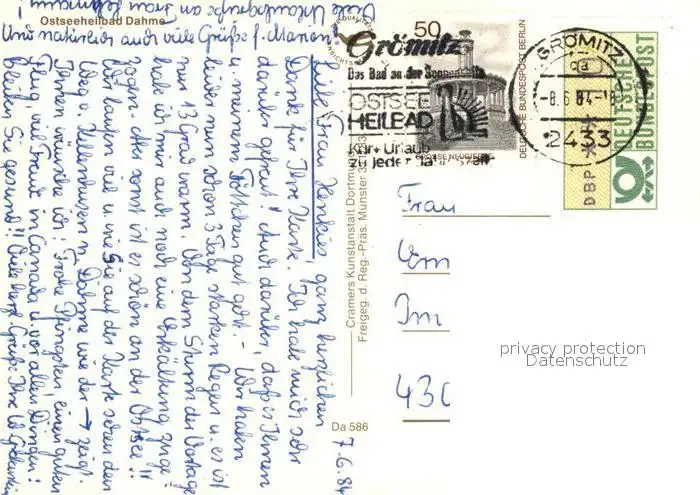 Ostseeheilbad Dahme
Viele Urlaubsgrüße an Frau
Und natürlich auch viele Grüße f. Marion!
7.6.84
Liebe Frau Henkies, ganz herzlichen
Dank für Ihre Karte. Ich habe mich sehr
darüber gefreut! Auch darüber, daß es Ihnen
u. meinem Töttchen gut geht. - Wir haben
leider nun schon 3 Tage starken Regen u. es ist
nur 13 Grad warm. Von dem Sturm der Vortage
habe ich mir auch noch eine Erkältung zuge-
zogen. Aber sonst ist es schön an der Ostsee!!
Wir laufen viel u. wie Sie auf der Karte sehen den
Weg Kellenhusen n. Dahme wie der → zeigt.
Ihnen wünsche ich: Frohe Pfingsten, einen guten
Flug, viel Freude in Canada u. vor allen Dingen:
bleiben Sie gesund!! Viele herzl. Grüße Ihre
Cramers Kunstanstalt Dortmund
Freigeg. d. Reg.-Präs. Münster
Da 586
50
DEUTSCHE BUNDESPOST BERLIN
GROSSE NEUGIERDE
Grömitz
Das Bad an der Sonnenseite
OSTSEE
HEILBAD
Kur + Urlaub
zu jeder Jahreszeit
GRÖMITZ
-8.6.84.-18
2433
DBP
DEUTSCHE
BUNDESPOST
Frau
Em
Im
430
privacy protection
Datenschutz